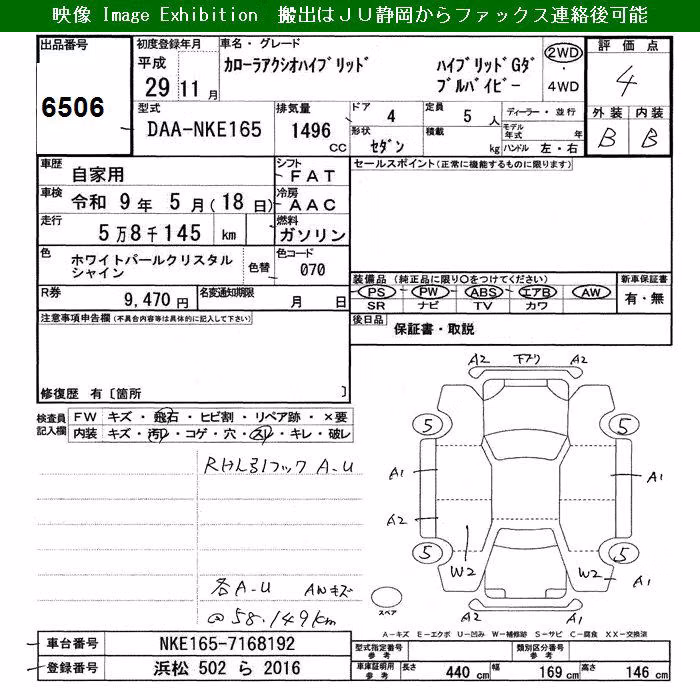 映像 Image Exhibition 搬出はJU静岡からファックス連絡後可能
出品番号
6506
初度登録年月
平成
29 11 月
車名・グレード
カローラアクシオハイブリッド ハイブリッドGダ
ブルバイビー
2WD
・
4WD
評価点
4
型式
DAA-NKE165
排気量
1496
cc
ドア
4
定員
5 人
形状
セダン
積載
kg
ディーラー・並行
モデル年式 年
ハンドル 左・右
外装 内装
B B
車歴
自家用
シフト
FAT
車検
令和 9 年 5 月 ( 18 日)
冷房
AAC
走行
5 万 8 千 145 km
燃料
ガソリン
色
ホワイトパールクリスタル
シャイン
色替
色コード
070
R券
9,470 円
名変通知期限
月 日
セールスポイント(正常に機能するものに限ります)
装備品 (純正品に限り〇をつけてください)
新車保証書
PS PW ABS エアB AW
SR ナビ TV カワ
有・無
後日品
保証書・取説
注意事項申告欄(不具合内容等は具体的に記入して下さい)
修復歴 有 [箇所 ]
検査員
記入欄
FW キズ・飛石・ヒビ割・リペア跡・×要
内装 キズ・汚れ・コゲ・穴・スレ・キレ・破レ
RHL引フック A-U
各A-U AWキズ
@58.149km
A2 下ブリ A2
5 5
A1 A1
A2
5 5
W2 W2 A1
A2 A2
スペア
A-キズ E-エクボ U-凹み W-補修跡 S-サビ C-腐食 XX-交換済
車台番号
NKE165-7168192
登録番号
浜松 502 ら 2016
型式指定番号
参考
類別区分番号
参考
車庫証明用
参考
長さ 440 cm 幅 169 cm 高さ 146 cm